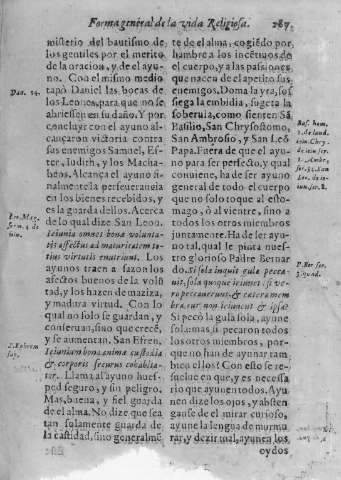 Forma general de la vida Religiosa. 287.
misterio del bautismo de
los gentiles por el merito
de la oracion, y de el ayu-
no. Con el mismo medio
tapò Daniel las bocas de
los Leones, para que no se
abriessen en su daño. Y por
concluyr con el ayuno al-
cançaron victoria contra
sus enemigos Samuel, Es-
ter, Iudith, y los Macha-
beos. Alcança el ayuno fi-
nalmente la perseuerancia
en los bienes recebidos, y
es la guarda dellos. Acerca
de lo qual dize San Leon.
Ieiunia omnes bonæ volunta-
tis affectus ad maturitatem to-
tius virtutis enutriunt. Los
ayunos traen a sazon los
afectos buenos de la volũ
tad, y los hazen de maziza,
y madura virtud. Con lo
qual no solo se guardan, y
conseruan, sino que crecẽ,
y se aumentan. San Efren.
Ieiunium bona animæ custodia
& corporis securus cohabita-
tor. Llama al ayuno hues-
ped seguro, y sin peligro.
Mas, buena, y fiel guarda
de el alma. No dize que sea
tan solamente guarda de
la castidad, sino generalmẽ
Dan. 14.
Leo. Mag.
serm. 4. de
ieiu.
S. Ephrem
sup.
te de el alma, cogiẽdo por
hambre a los incẽtiuos de
el cuerpo, y a las passiones
que nacen de el apetito sus
enemigos. Doma la yra, sos
siega la embidia, sugeta la
soberuia, como sienten Sã
Basilio, San Chrysostomo,
San Ambrosio, y San Leõ
Papa. Fuera de que el ayu-
no para ser perfecto, y qual
conuiene, ha de ser ayuno
general de todo el cuerpo
que no solo toque al esto-
mago, ò al vientre, sino a
todos los otros miembros
juntamente. Ha de ser ayu-
no tal, qual le pinta nuestro
glorioso Padre Bernar
do. Si sola inquit gula pecca-
uit, sola quoque ieiunet: si ve-
ro peccauerunt, & cætera mem
bra, cur non ieiunent & ipsa?
Si pecò la gula sola, ayune
sola: mas si pecaron todos
los otros miembros, por-
que no han de ayunar tam
bien ellos? Con esto se re-
suelue en que, y es necessa
rio que ayunen todos. Ayu
nen dize los ojos, y abstẽn
ganse de el mirar curioso,
ayune la lengua de murmu
rar, y dezir mal, ayunen los
oydos
Bas. hom.
1. de laud.
ieiu. Chry.
P. Ber. ser.
3. quad.